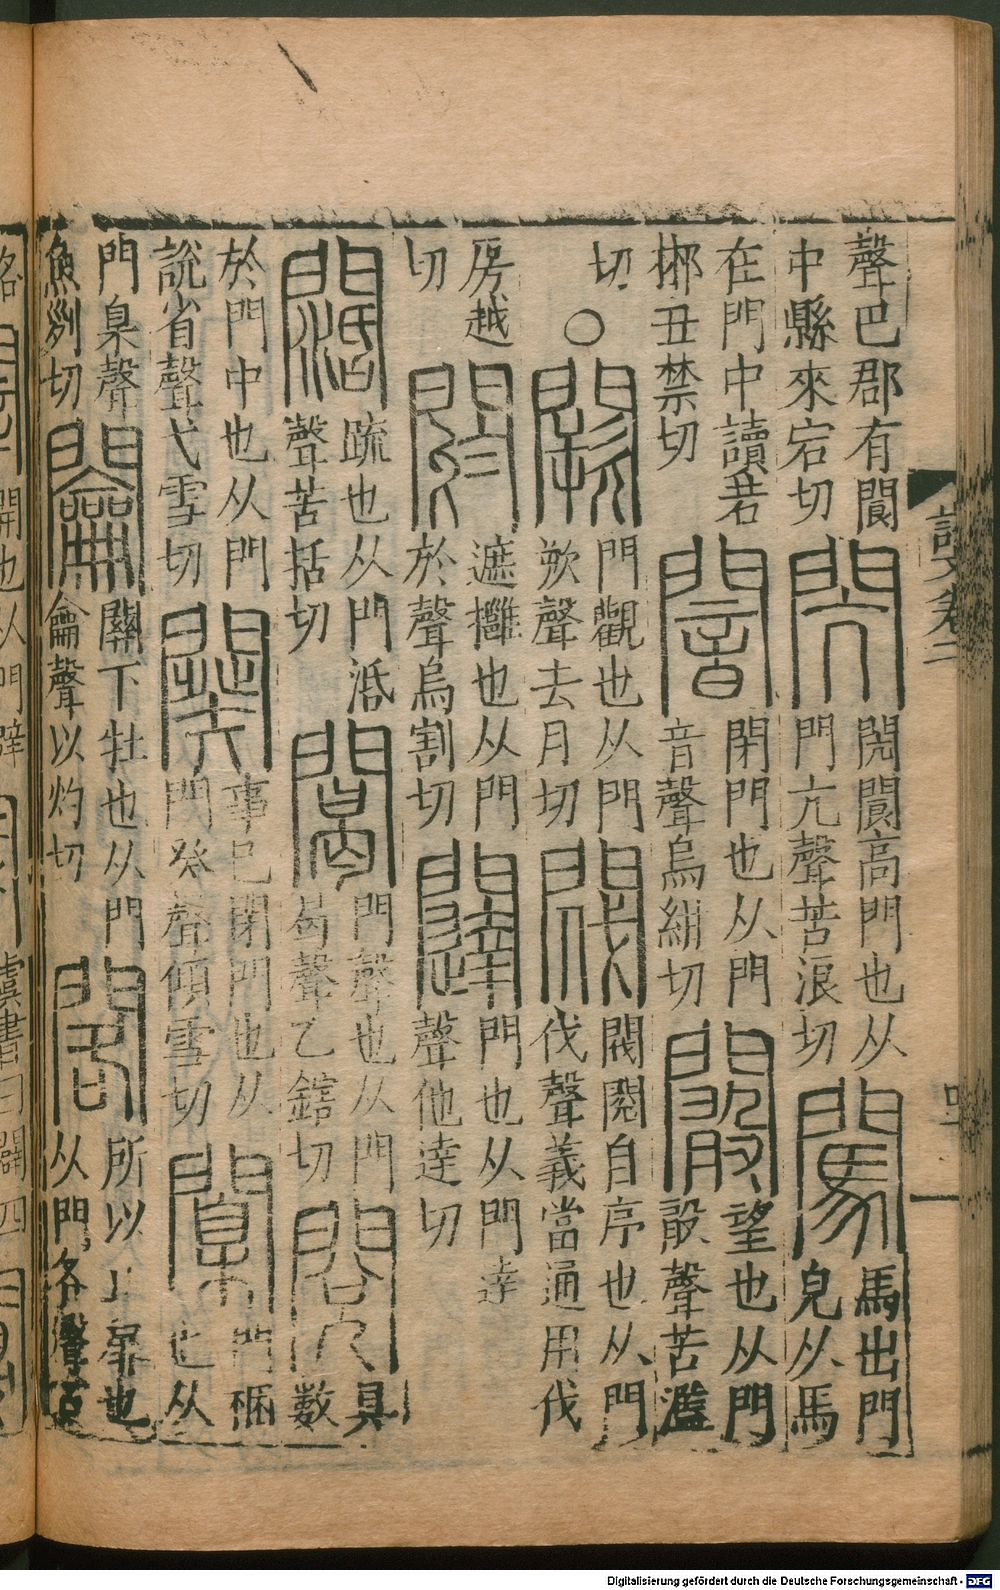 說文卷二
聲巴郡有閬
中縣來宕切
閌
閌閬高門也从
門亢聲苦浪切
闖
馬出門
皃从馬
在門中讀若
郴丑禁切
闇
閉門也从門
音聲烏紺切
闞
望也从門
𣪊聲苦濫
切○
闕
門觀也从門
欮聲去月切
閥
閥閱自序也从門
伐聲義當通用伐
房越
切
閼
遮攤也从門
於聲烏割切
闥
門也从門達
聲他達切
闊
疏也从門活
聲苦括切
䦪
門聲也从門
曷聲乙鎋切
閱
具
數
於門中也从門
說省聲弋雪切
闋
事已閉門也从
門癸聲傾雪切
闑
門梱
也从
門臬聲
魚列切
闟
關下牡也从門
龠聲以灼切
閣
所以止扉也
从門各聲古
Digitalisierung gefördert durch die Deutsche Forschungsgemeinschaft - DFG